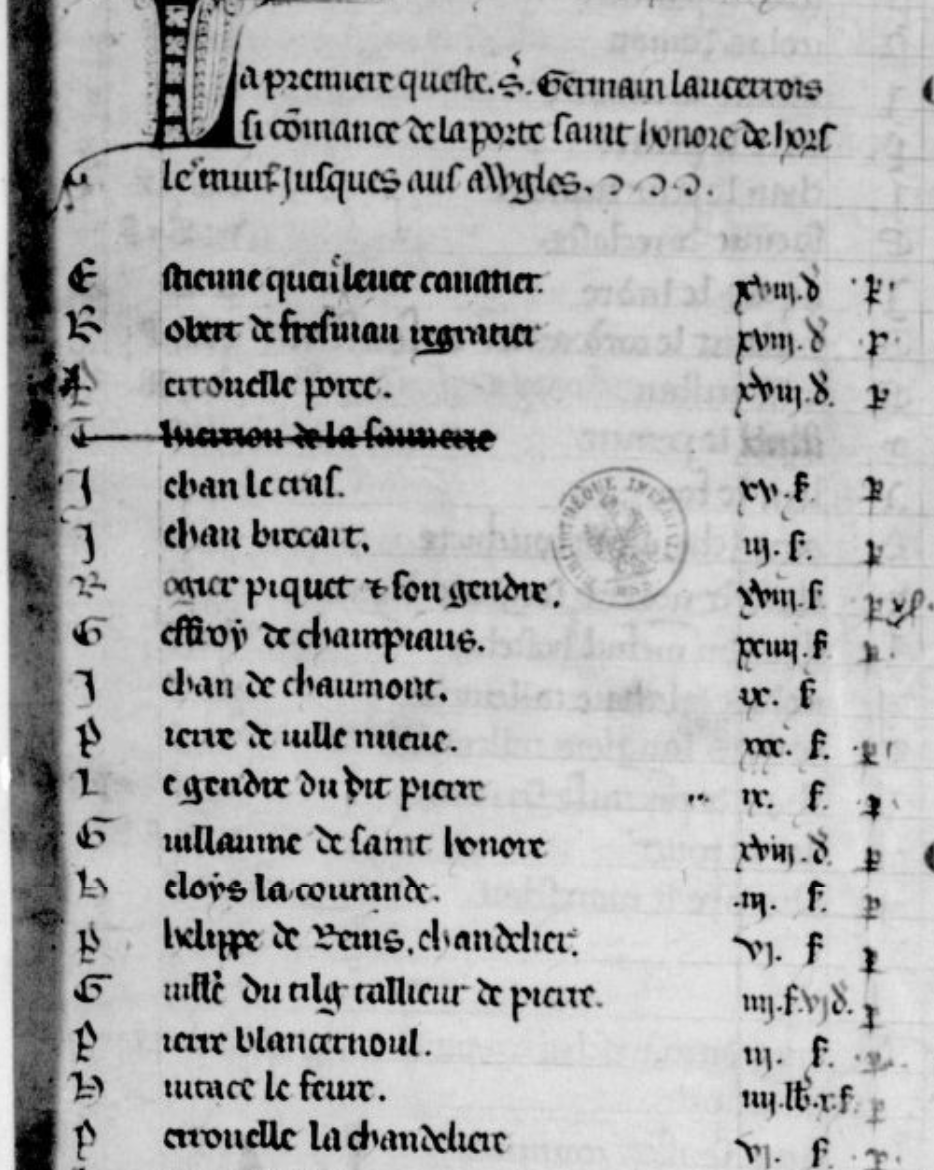 La premiere queste. S. Germain laucerrois
si cōmance de la porte saint honore de hors
les murs jusques aus avugles.
Estienne qui leuer cauatier. xviij. d p
Robert de fresnian regratier xviij. d p
Perronelle poree. xviij. d. p
de la saunerie
Jehan le cras. xv. s. p
Jehan biccart. iij. s. p
Rogier piquet & son gendre. xviij. s p
Geffroy de champiaus. xxiiij. s p.
Jehan de chaumont. ix. s
Pierre de uille nueue. xxx. s. p
Le gendre du dit pierre ix. s. p
Guillaume de saint honore xviij. d. p
Heloys la courande. iij. s. p
Phelippe de Reins, chandelier. vj. s p
Guille du tallieur de pierre. iiij. s. vj d. p
Pierre blancernoul. iij. s.
Huitace le feure. iiij. lb. x s. p
Perronelle la chandeliere vj. s. p